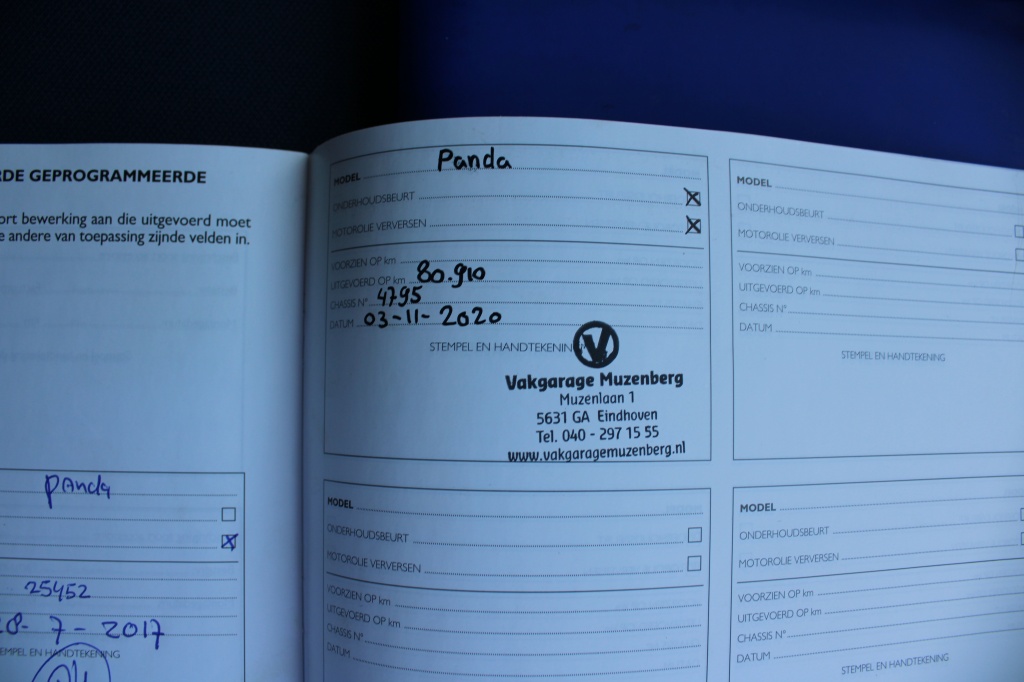 RDE GEPROGRAMMEERDE
ort bewerking aan die uitgevoerd moet
e andere van toepassing zijnde velden in.
Panda
25452
28-7-2017
STEMPEL EN HANDTEKENING
MODEL Panda
ONDERHOUDSBEURT
MOTOROLIE VERVERSEN
VOORZIEN OP km
UITGEVOERD OP km 80.910
CHASSIS N° 4795
DATUM 03-11-2020
STEMPEL EN HANDTEKENING
V
Vakgarage Muzenberg
Muzenlaan 1
5631 GA Eindhoven
Tel. 040 - 297 15 55
www.vakgaragemuzenberg.nl
MODEL
ONDERHOUDSBEURT
MOTOROLIE VERVERSEN
VOORZIEN OP km
UITGEVOERD OP km
CHASSIS N°
DATUM
MODEL
ONDERHOUDSBEURT
MOTOROLIE VERVERSEN
VOORZIEN OP km
UITGEVOERD OP km
CHASSIS N°
DATUM
STEMPEL EN HANDTEKENING
MODEL
ONDERHOUDSBEURT
MOTOROLIE VERVERSEN
VOORZIEN OP km
UITGEVOERD OP km
CHASSIS N°
DATUM
STEMPEL EN HANDTEKENING